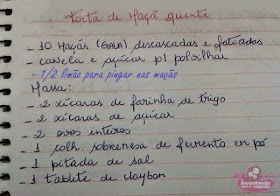 Torta de Maçã quente
- 10 Maçãs (GALA) descascadas e fatiadas
- canela e açúcar p/ polvilhar
- 1/2 limão para pingar nas maçãs
Massa:
- 2 xícaras de farinha de trigo
- 2 xícaras de açúcar
- 2 ovos inteiros
- 1 colh. sobremesa de fermento em pó
- 1 pitada de sal
- 1 tablete de claybon
inventando
com a mamãe